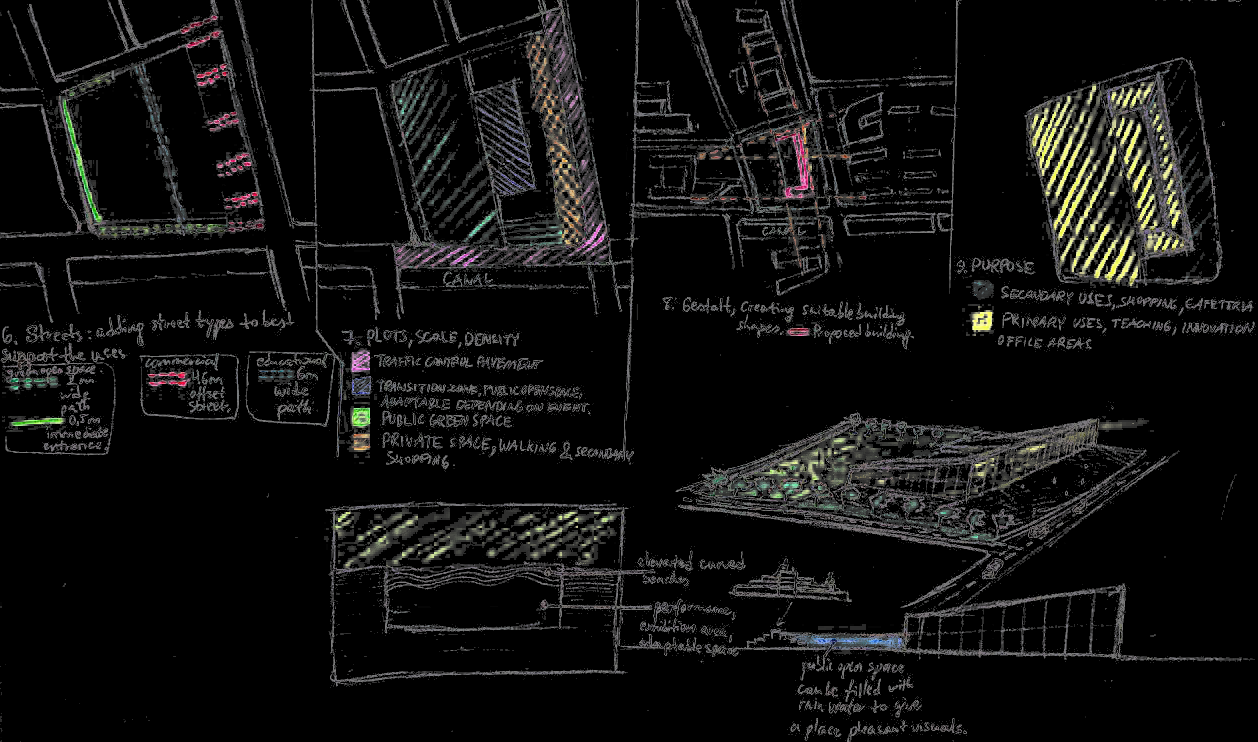 6. Streets: adding street types to best
support the uses
green open space.
2m
wide
path
0,5m
immediate
entrance.
commercial
4.6m
offset
street.
educational
6m
wide
path.
CANAL
7. PLOTS, SCALE, DENSITY
TRAFFIC CONTROL PAVEMENT
TRANSITION ZONE, PUBLIC OPEN SPACE,
ADAPTABLE DEPENDING ON EVENT.
PUBLIC GREEN SPACE
PRIVATE SPACE, WALKING & SECONDARY
SHOPPING.
CANAL
8. Gestalt, Creating suitable building
shapes. Proposed building.
9. PURPOSE
SECONDARY USES, SHOPPING, CAFETERIA
PRIMARY USES, TEACHING, INNOVATION
OFFICE AREAS
elevated curved
benches
performance,
exhibition area,
adaptable space
public open space
can be filled with
rain water to give
a place pleasant visuals.